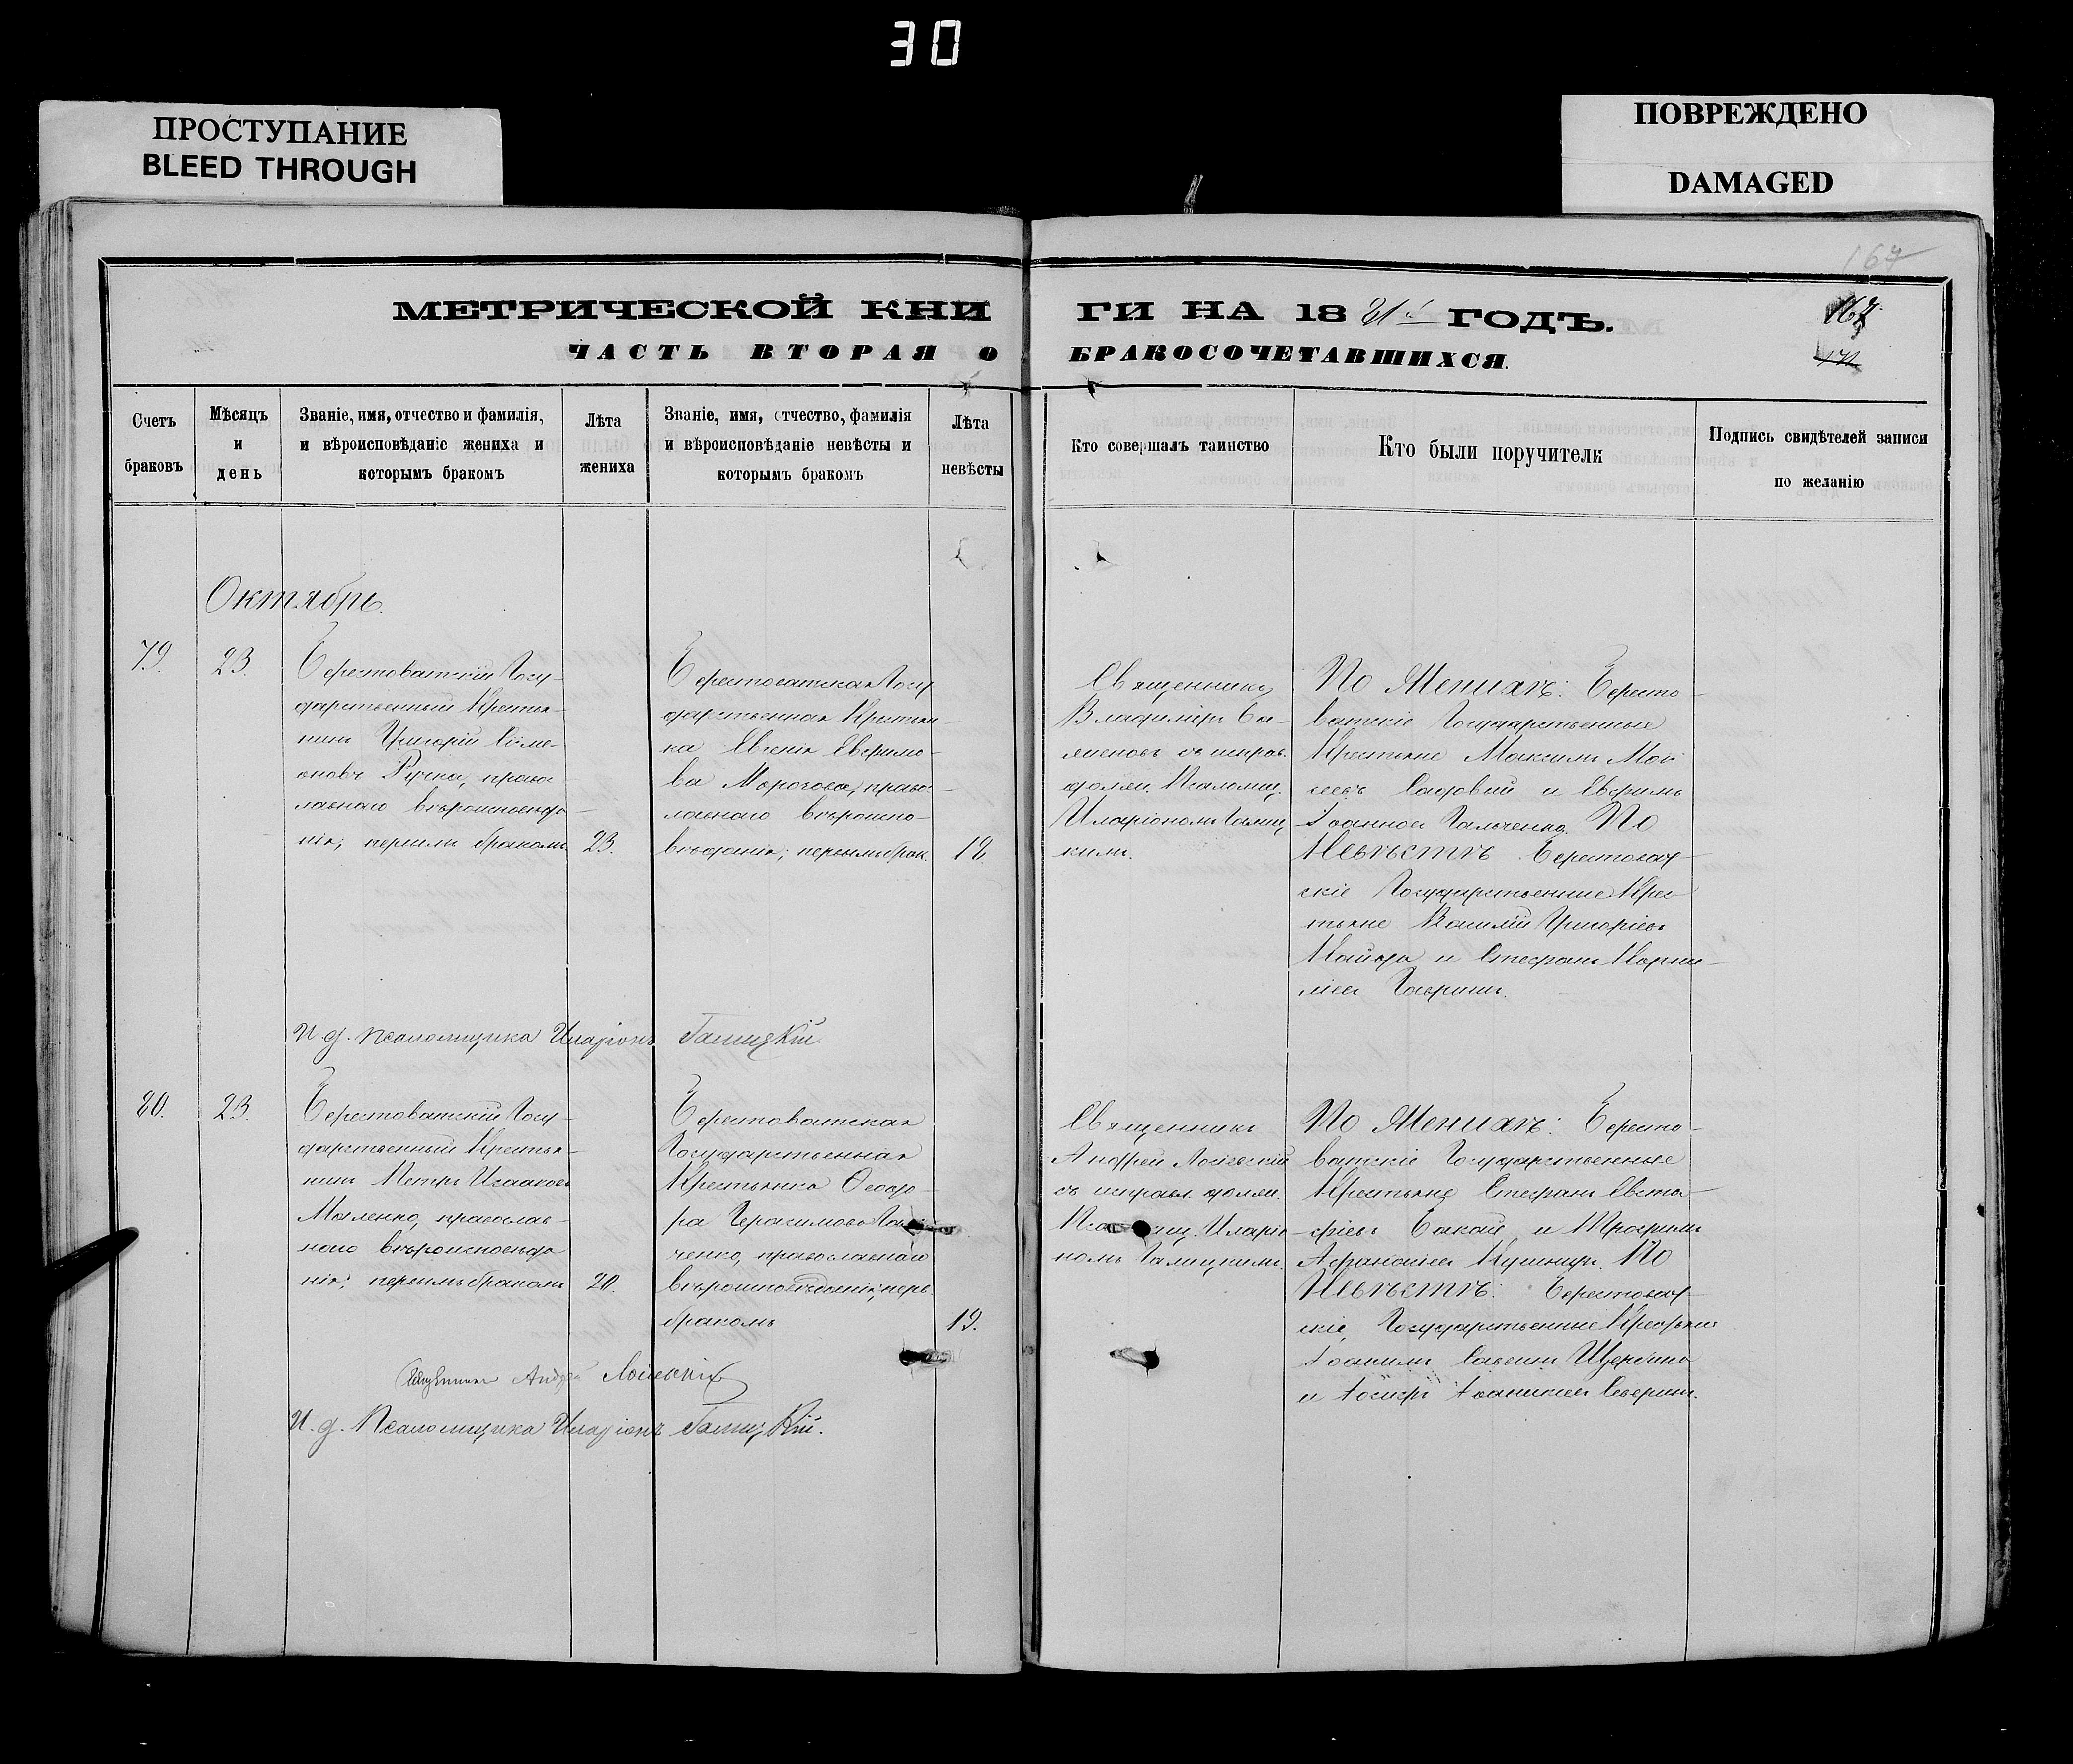 30
ПРОСТУПАНИЕ
BLEED THROUGH
ПОВРЕЖДЕНО
DAMAGED
167
МЕТРИЧЕСКОЙ КНИ
ГИ НА 1881й ГОДЪ.
ЧАСТЬ ВТОРАЯ О
БРАКОСОЧЕТАВШИХСЯ.
Счетъ
браковъ
Мѣсяцъ
и
день
Званіе, имя, отчество и фамилія,
и вѣроисповѣданіе жениха и
которымъ бракомъ
Лѣта
жениха
Званіе, имя, отчество, фамилія
и вѣроисповѣданіе невѣсты и
которымъ бракомъ
Лѣта
невѣсты
Кто совершалъ таинство
Кто были поручители
Подпись свидѣтелей записи
по желанію
Октябрь.
79.
23.
Берестоватскій Госу-
дарственный Крестья-
нинъ Григорій Симе-
оновъ Ручка, правос-
лавнаго вѣроисповѣда-
нія; первымъ бракомъ
23.
Берестоватская Госу
дарственная Крестьян-
ка Евгенія Евфимо-
ва, правос-
лавнаго вѣроиспо-
вѣданія; первымъ брак.
18.
Священникъ
Владиміръ
съ исправ.
должн. Псаломщ.
Иларіономъ Галиц
кимъ.
По Женихѣ: Бересто-
ватскіе Государственные
Крестьяне Максимъ Мои
сеевъ Садовый и Евфимъ
Іоанновъ Гальченко. По
Невѣстѣ Берестоват-
скіе Государственные Крес
тьяне Василій Григоріевъ
и Стефанъ Корни-
ліевъ
И. д. псаломщика Иларіонъ Галицкій.
80.
23.
Берестоватскій Госу-
дарственный Крестья-
нинъ Петръ Исааковъ
Маленко, православ-
наго вѣроисповѣда
нія; первымъ бракомъ
20.
Берестоватская
Государственная
Крестьянка Ѳеодо-
ра Герасимова
ченко, православнаго
вѣроисповѣданія; перв.
бракомъ
19.
Священникъ
Андрей Лосіевскій
съ исправл. должн.
Иларіо
номъ Галицкимъ.
По Женихѣ: Бересто-
ватскіе Государственные
Крестьяне Стефанъ Евста-
фіевъ Бакай и Трофимъ
Афанасіевъ Кушниръ. По
Невѣстѣ: Берестоват-
скіе, Государственные Крестьяне
Савинъ Щербина
и Іосифъ Іоанникіевъ Северинъ.
Священникъ Андрей Лосіевскій
И. д. Псаломщика Иларіонъ Галицкій.